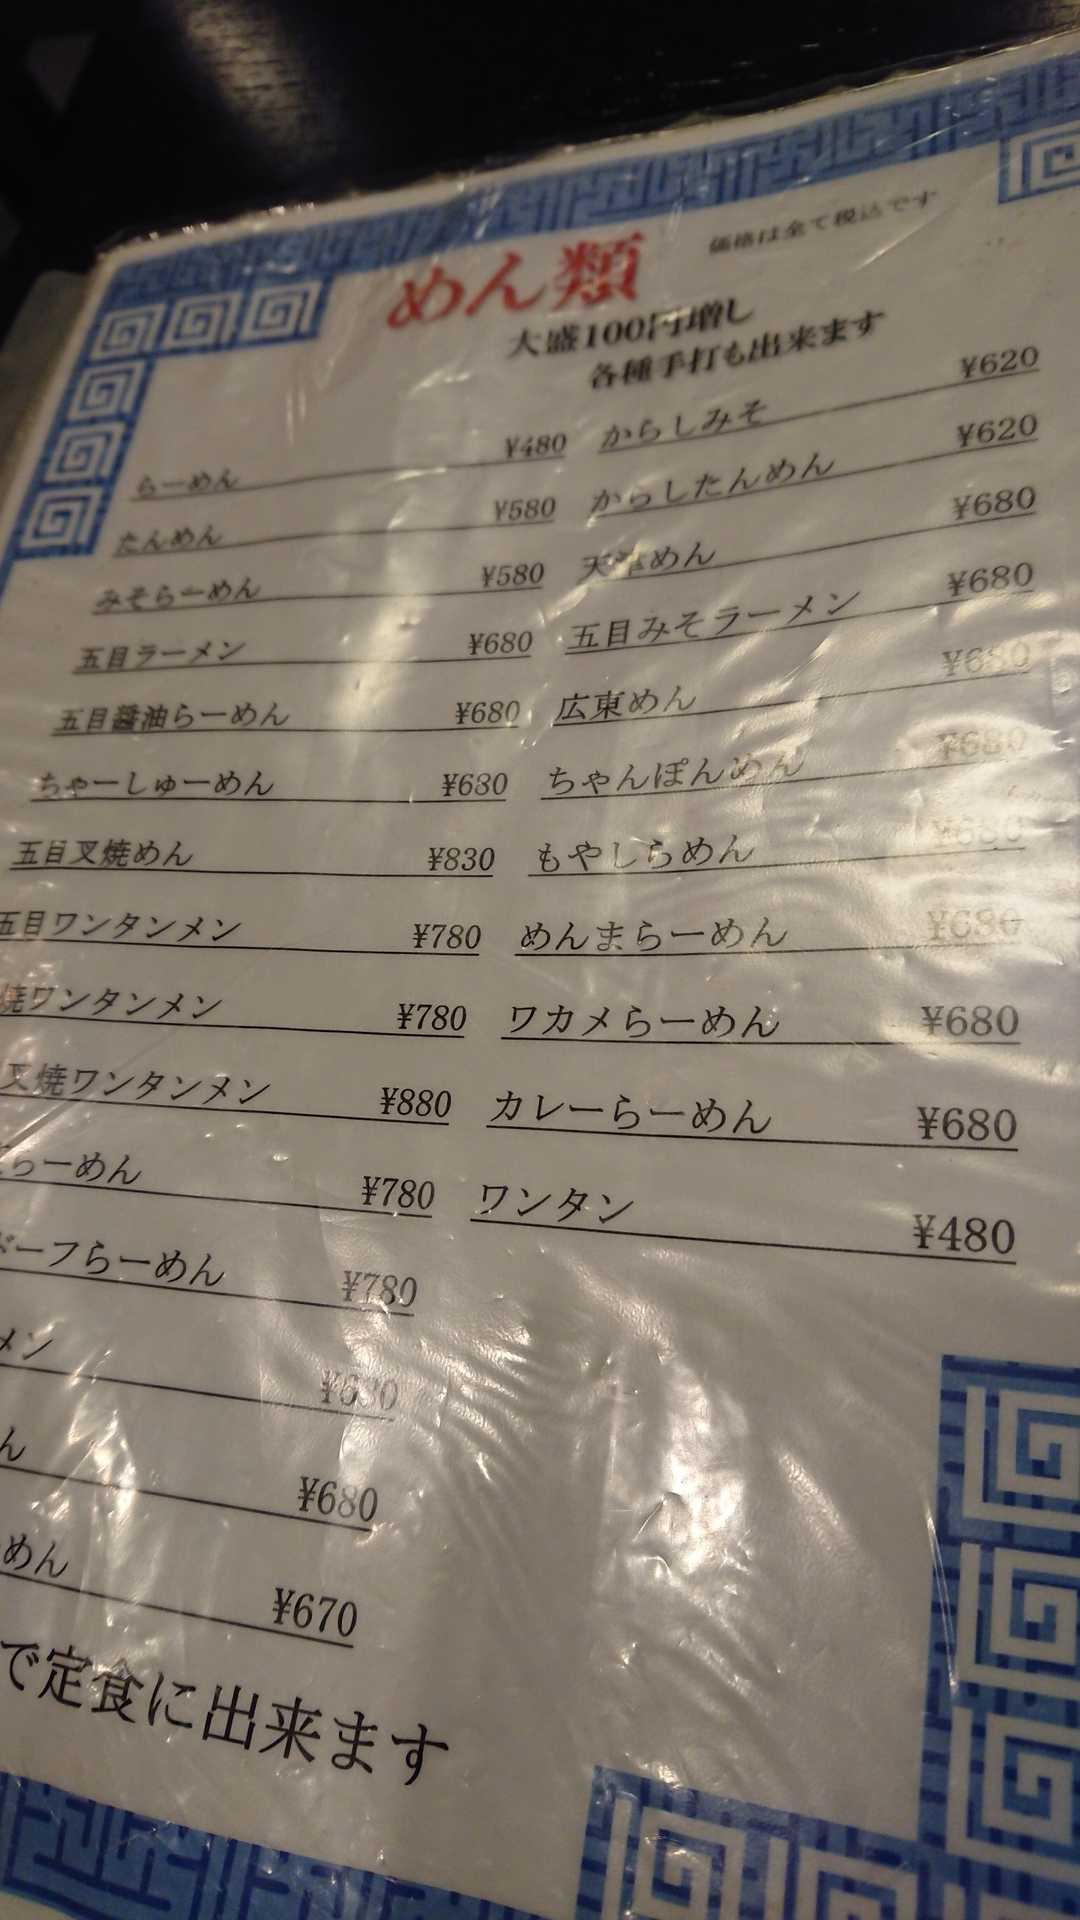 めん類
価格は全て税込です
大盛100円増し
各種手打も出来ます
らーめん ¥480
たんめん ¥580
みそらーめん ¥580
五目ラーメン ¥680
五目醤油らーめん ¥680
ちゃーしゅーめん ¥630
五目叉焼めん ¥830
五目ワンタンメン ¥780
焼ワンタンメン ¥780
叉焼ワンタンメン ¥880
らーめん ¥780
ーフらーめん ¥780
メン
ん ¥680
めん ¥670
で定食に出来ます
からしみそ ¥620
からしたんめん ¥620
天津めん ¥680
五目みそラーメン ¥680
広東めん ¥680
ちゃんぽんめん ¥680
もやしらめん ¥680
めんまらーめん ¥680
ワカメらーめん ¥680
カレーらーめん ¥680
ワンタン ¥480